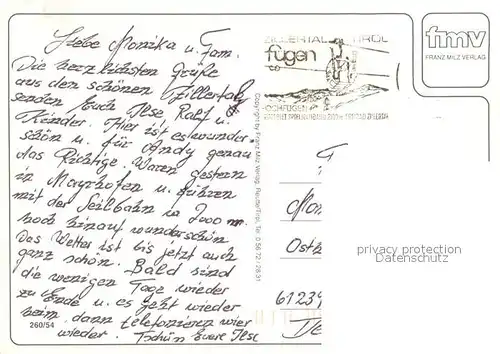 Liebe Monika u. Fam.
Die herzlichsten Grüße
aus den schönen Zillertal
senden Euch Ilse, Ralf u.
Kinder. Hier ist es wunder-
schön u. für Andy genau
das Richtige. Waren gestern
in Mayrhofen u. fuhren
mit der Seilbahn in 2000 m
hoch hinauf wunderschön
Das Wetter ist bis jetzt auch
ganz schön. Bald sind
die wenigen Tage wieder
zu Ende u. es geht wieder
heim, dann telefonieren wier
wieder. Tschün Euere Ilse
260/54
Copyright by Franz Milz Verlag, Reutte/Tirol, Tel. 0 56 72 / 28 31
ZILLERTAL TIROL
fügen
HOCHFÜGEN
fmv
FRANZ MILZ VERLAG
F
Mon
Osth
61231
privacy protection
Datenschutz